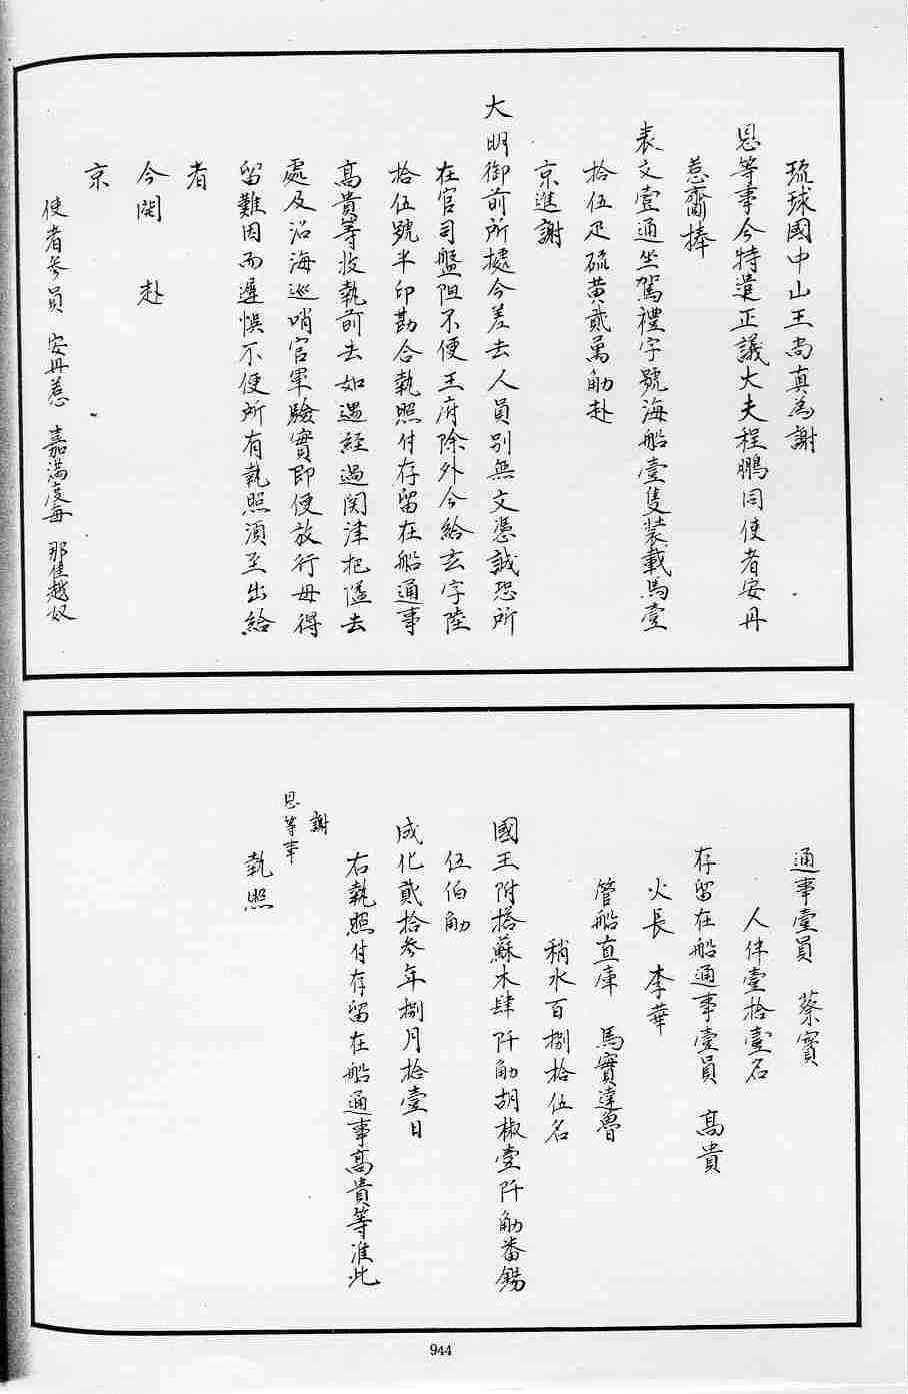 琉球國中山王尚真為謝
恩等事今特遣正議大夫程鵬同使者安丹
惹齎捧
表文壹通坐駕禮字號海船壹隻装載馬壹
拾伍疋硫黄貳萬觔赴
京進謝
大明御前所據今差去人員別無文憑誠恐所
在官司盤阻不便王府除外今給玄字陸
拾伍號半印勘合執照付存留在船通事
髙貴等收執前去如遇経過関津把隘去
處及沿海巡哨官軍驗實即便放行毋得
留難因而遲悞不便所有執照湏至出給
者
今開赴
京
使者參員 安丹惹 嘉満度每 那佳越奴
通事壹員 蔡實
人伴壹拾壹名
存留在船通事壹員 髙貴
火長 李華
管船直庫 馬實達魯
稍水百捌拾伍名
國王附搭蘇木肆阡觔胡椒壹阡觔番錫
伍伯觔
成化貳拾參年捌月拾壹日
右執照付存留在船通事髙貴等准此
謝
恩等事
執照
944